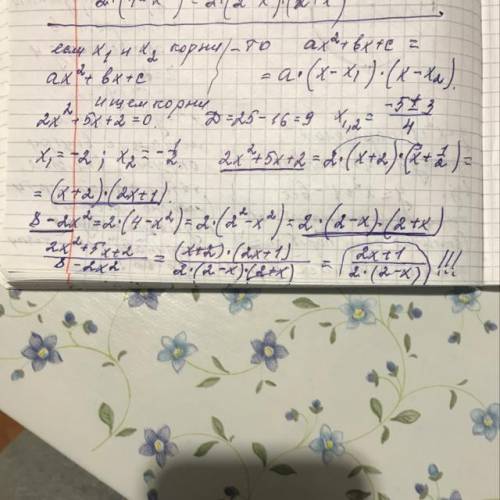 2·(4-x²) = 2·(2-x)·(2+x)
если x₁ и x₂ корни - то ax²+bx+c =
ax²+bx+c = a·(x-x₁)·(x-x₂).
ищем корни
2x²+5x+2=0 D=25-16=9 x₁,₂ = (-5±3)/4
x₁=-2; x₂=-1/2. 2x²+5x+2=2·(x+2)·(x+1/2)=
=(x+2)·(2x+1).
8-2x²=2·(4-x²)=2·(2²-x²)=2·(2-x)·(2+x)
(2x²+5x+2)/(8-2x2) = ((x+2)·(2x+1))/(2·(2-x)·(2+x)) = (2x+1)/(2·(2-x)) !!!